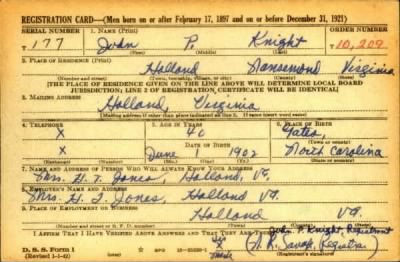 REGISTRATION CARD—(Men born on or after February 17, 1897 and on or before December 31, 1921)
SERIAL NUMBER 1. NAME (Print) ORDER NUMBER
T 177 John P. Knight T 10,209
(First) (Middle) (Last)
2. PLACE OF RESIDENCE (Print)
Holland Nansemond Virginia
(Number and street) (Town, township, village, or city) (County) (State)
[THE PLACE OF RESIDENCE GIVEN ON THE LINE ABOVE WILL DETERMINE LOCAL BOARD
JURISDICTION; LINE 2 OF REGISTRATION CERTIFICATE WILL BE IDENTICAL]
3. MAILING ADDRESS
Holland, Virginia
[Mailing address if other than place indicated on line 2. If same insert word same]
4. TELEPHONE 5. AGE IN YEARS 6. PLACE OF BIRTH
X 40 Gates,
DATE OF BIRTH (Town or county)
X June 1902 North Carolina
(Exchange) (Number) (Mo.) (Day) (Yr.) (State or country)
7. NAME AND ADDRESS OF PERSON WHO WILL ALWAYS KNOW YOUR ADDRESS
Mrs. H. T. Jones, Holland, Va.
8. EMPLOYER'S NAME AND ADDRESS
Mrs. H. T. Jones, Holland, Va.
9. PLACE OF EMPLOYMENT OR BUSINESS
Holland Va.
(Number and street or R. F. D. number) (Town) (County) (State)
I AFFIRM THAT I HAVE VERIFIED ABOVE ANSWERS AND THAT THEY ARE TRUE.
John P. Knight, Registrant
D. S. S. Form 1 his X mark
(Revised 1-1-42) Registrar)